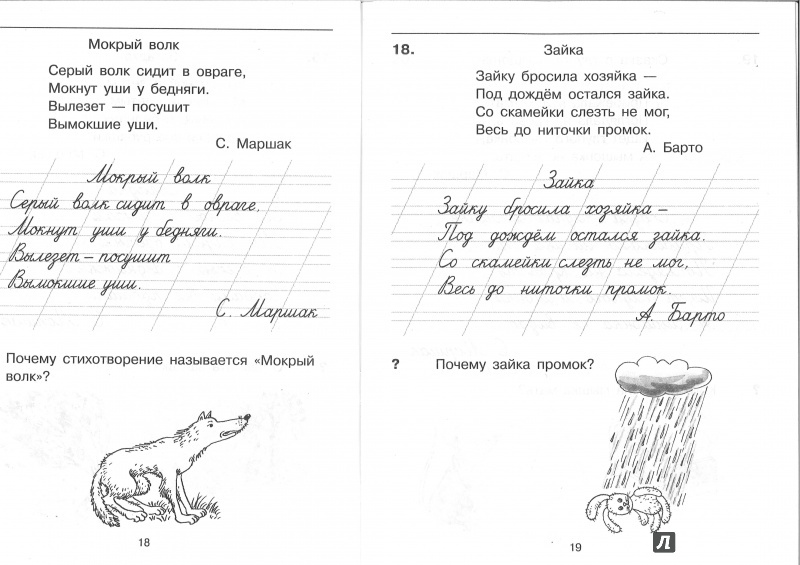 Мокрый волк
Серый волк сидит в овраге,
Мокнут уши у бедняги.
Вылезет — посушит
Вымокшие уши.
С. Маршак
Мокрый волк
Серый волк сидит в овраге,
Мокнут уши у бедняги.
Вылезет – посушит
Вымокшие уши.
С. Маршак
Почему стихотворение называется «Мокрый
волк»?
18
18. Зайка
Зайку бросила хозяйка —
Под дождём остался зайка.
Со скамейки слезть не мог,
Весь до ниточки промок.
А. Барто
Зайка
Зайку бросила хозяйка –
Под дождём остался зайка.
Со скамейки слезть не мог,
Весь до ниточки промок.
А. Барто
? Почему зайка промок?
19
Л